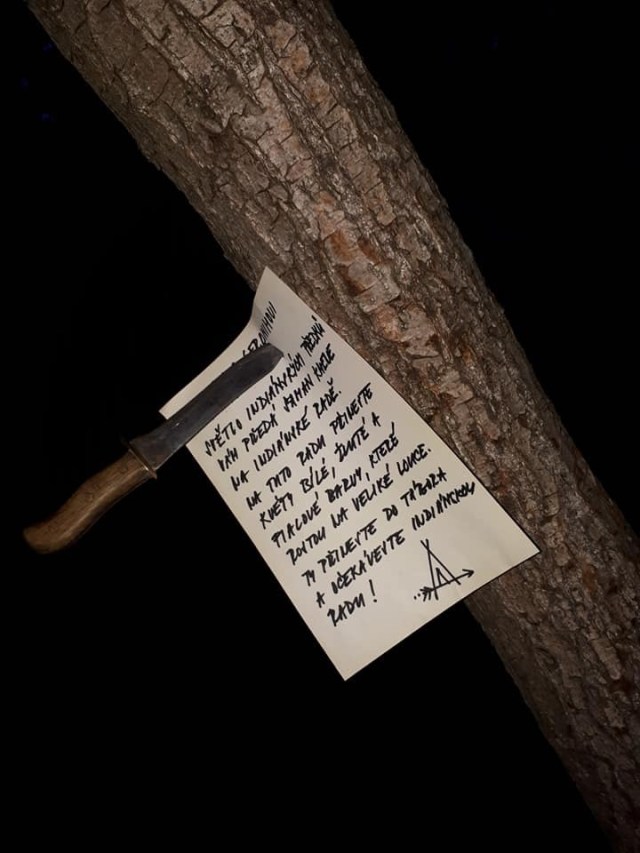 SVĚTLO INDIÁNSKÝCH PŘEDKŮ
VÁM PŘEDÁ ŠAMAN KHELE
NA INDIÁNSKÉ RADĚ.
NA TUTO RADU PŘINESTE
KVĚTY BÍLÉ, ŽLUTÉ A
FIALOVÉ BARVY, KTERÉ
ROSTOU NA VELIKÉ LOUCE.
TY PŘINESTE DO TÁBORA
A OČEKÁVEJTE INDIÁNSKOU
RADU!